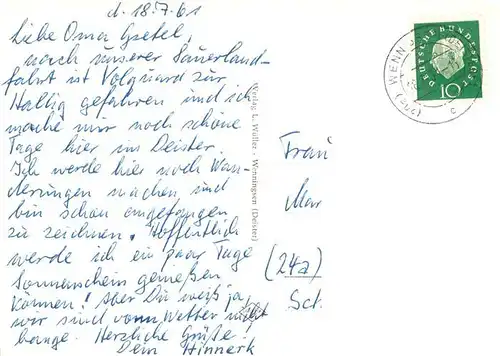 d. 18.7.61
Liebe Oma Gretel,
nach unserer Sauerland-
fahrt ist Volquard zur
Hallig gefahren und ich
mache mir noch schöne
Tage hier im Deister.
Ich werde hier noch Wan-
derungen machen und
bin schon angefangen
zu zeichnen. Hoffentlich
werde ich ein paar Tage
Sonnenschein genießen
können! Aber Du weißt ja,
wir sind vorm Wetter nicht
bange. Herzliche Grüße!
Dein Hinnerk
Verlag L. Müller - Wenningsen (Deister)
WENN
c
DEUTSCHE BUNDESPOST
10
Frau
Mar
(24a)
Sch